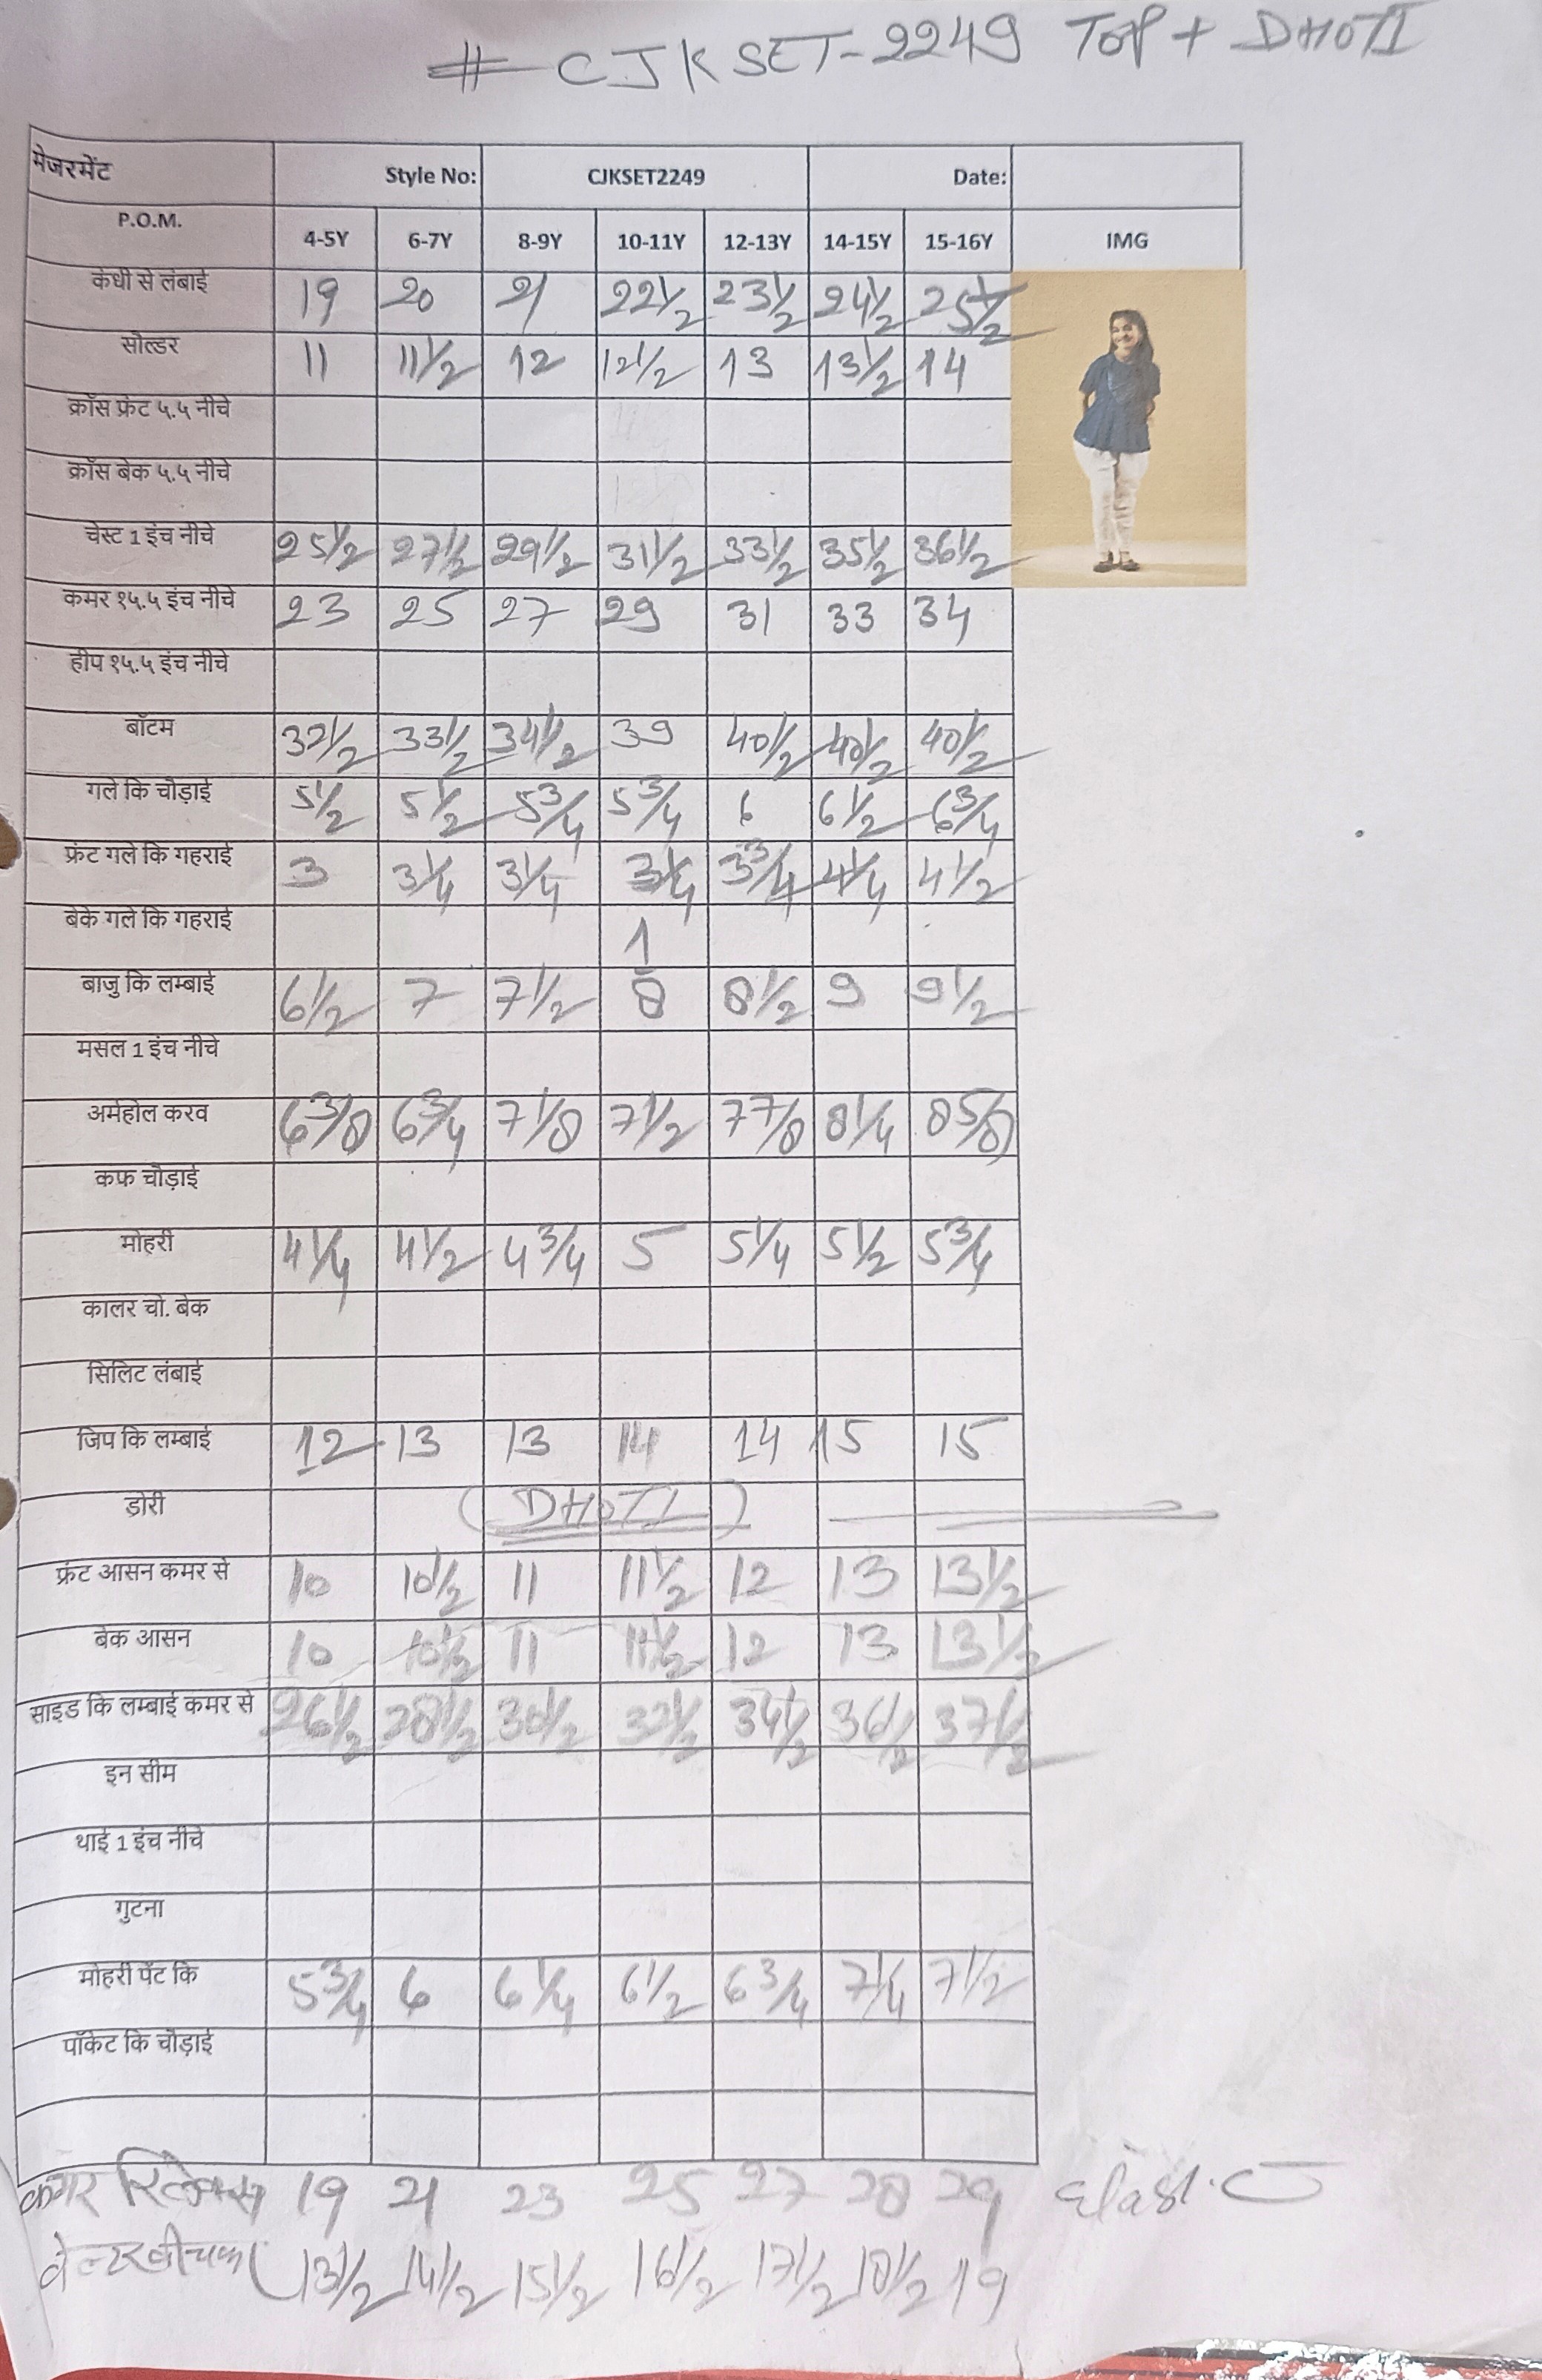 # CJKSET-2249 TOP + DHOTI
मेजरमेंट Style No: CJKSET2249 Date:
P.O.M. 4-5Y 6-7Y 8-9Y 10-11Y 12-13Y 14-15Y 15-16Y IMG
कंधी से लंबाई 19 20 21 22 1/2 23 1/2 24 1/2 25 1/2
सोल्डर 11 11 1/2 12 12 1/2 13 13 1/2 14
क्रॉस फ्रंट ५.५ नीचे
क्रॉस बेक ५.५ नीचे
चेस्ट 1 इंच नीचे 25 1/2 27 1/2 29 1/2 31 1/2 33 1/2 35 1/2 36 1/2
कमर १५.५ इंच नीचे 23 25 27 29 31 33 34
हीप १५.५ इंच नीचे
बॉटम 32 1/2 33 1/2 34 1/2 39 40 1/2 40 1/2 40 1/2
गले कि चौड़ाई 5 1/2 5 1/2 5 3/4 5 3/4 6 6 1/2 6 3/4
फ्रंट गले कि गहराई 3 3 1/4 3 1/4 3 1/4 3 3/4 4 1/4 4 1/2
बेके गले कि गहराई 1
बाजु कि लम्बाई 6 1/2 7 7 1/2 8 8 1/2 9 9 1/2
मसल 1 इंच नीचे
अर्महोल करव 6 3/8 6 3/4 7 1/8 7 1/2 7 7/8 8 1/4 8 5/8
कफ चौड़ाई
मोहरी 4 1/4 4 1/2 4 3/4 5 5 1/4 5 1/2 5 3/4
कालर चो. बेक
सिलिट लंबाई
जिप कि लम्बाई 12 13 13 14 14 15 15
डोरी (DHOTI)
फ्रंट आसन कमर से 10 10 1/2 11 11 1/2 12 13 13 1/2
बेक आसन 10 10 1/2 11 11 1/2 12 13 13 1/2
साइड कि लम्बाई कमर से 26 1/2 28 1/2 30 1/2 32 1/2 34 1/2 36 1/2 37 1/2
इन सीम
थाई 1 इंच नीचे
गुटना
मोहरी पेंट कि 5 3/4 6 6 1/4 6 1/2 6 3/4 7 1/4 7 1/2
पॉकेट कि चौड़ाई
कमर रिलेक्स 19 21 23 25 27 28 29 Elast.c
13 1/2 14 1/2 15 1/2 16 1/2 17 1/2 18 1/2 19